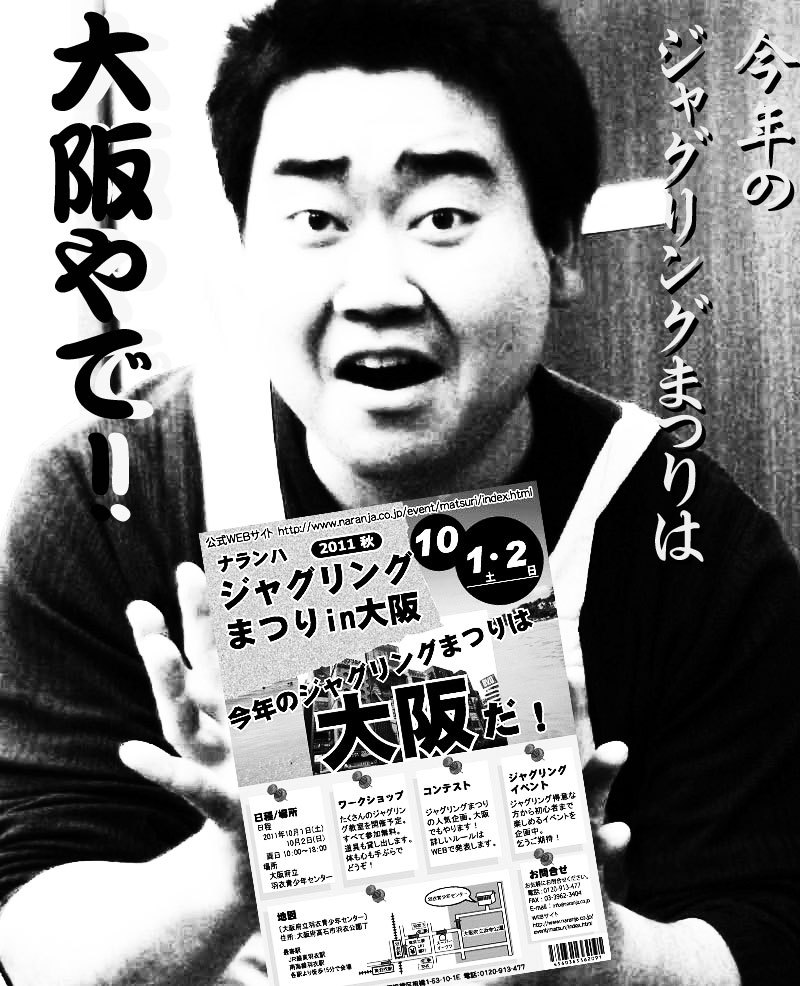 今年の
ジャグリングまつりは
大阪やで!!
公式WEBサイト http://www.naranja.co.jp/event/matsuri/index.html
ナランハ 2011 秋
10
1・2
土 日
ジャグリング
まつりin大阪
今年のジャグリングまつりは
大阪だ!
日程/場所
日程
2011年10月1日(土)
10月2日(日)
両日 10:00~18:00
場所
大阪府立
羽衣青少年センター
ワークショップ
たくさんのジャグリン
グ教室を開催予定。
すべて参加無料。
道具も貸し出します。
体も心も手ぶらで
どうぞ!
コンテスト
ジャグリングまつり
の人気企画。大阪
でもやります!
詳しいルールは
WEBで発表します。
ジャグリング
イベント
ジャグリング得意な
方から初心者まで
楽しめるイベントを
企画中。
乞うご期待!
お問合せ
お気軽にお問合せください。
電話:0120-913-477
FAX:03-3962-3404
E-mail: info@naranja.co.jp
WEBサイト
http://www.naranja.co.jp/
event/matsuri/index.html
地図
(大阪府立羽衣青少年センター)
住所 大阪府高石市羽衣公園丁
最寄駅
JR線東羽衣駅
南海線羽衣駅
各駅より徒歩15分で会場
羽衣青少年センター
1-53-10-1E 電話:0120-913-477